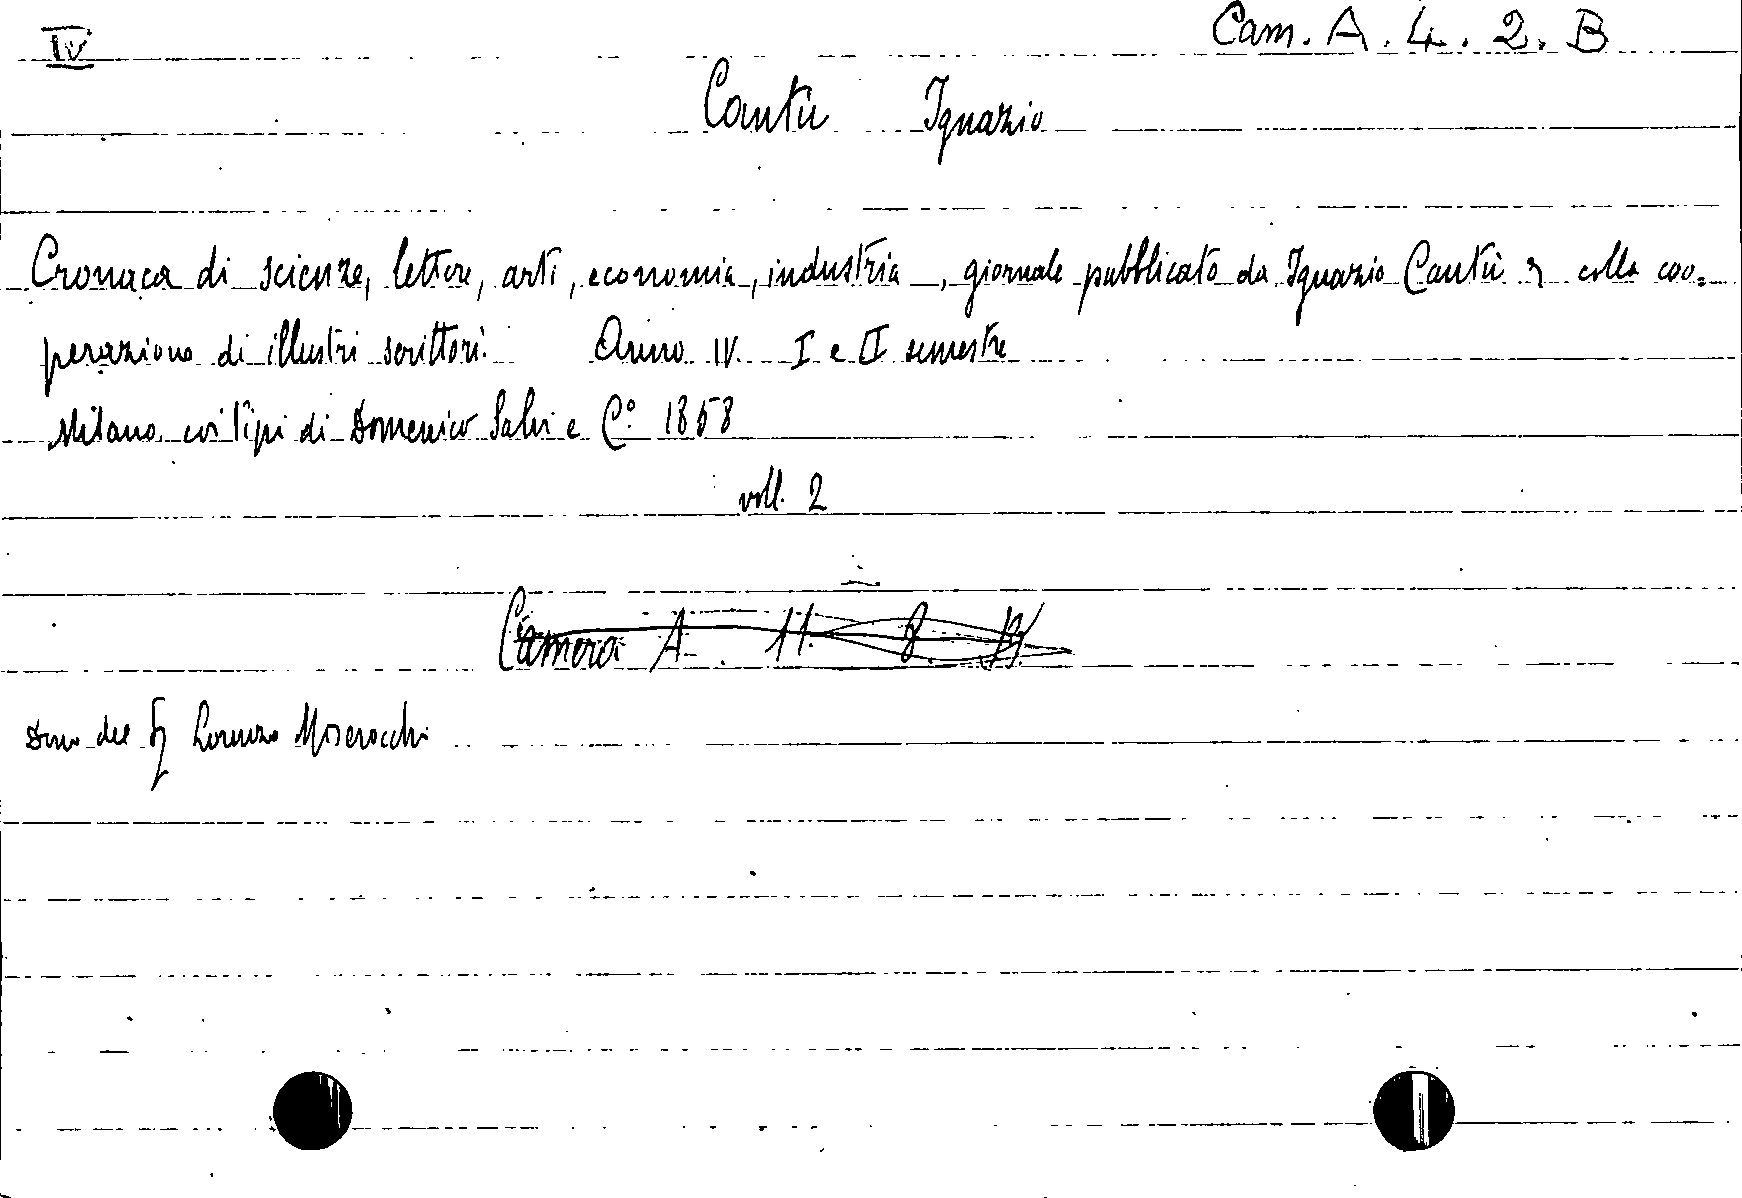 IV
Cam. A. 4. 2. B
Cantù Ignazio
Cronaca di scienze, lettere, arti, economia, industria, giornale pubblicato da Ignazio Cantù colla coo=
perazione di illustri scrittori. Anno IV. I e II semestre
Milano coi tipi di Domenico Salvi e C.° 1858
voll. 2
Camera A. 11. 8.
Dono del Sig Lorenzo Miserocchi